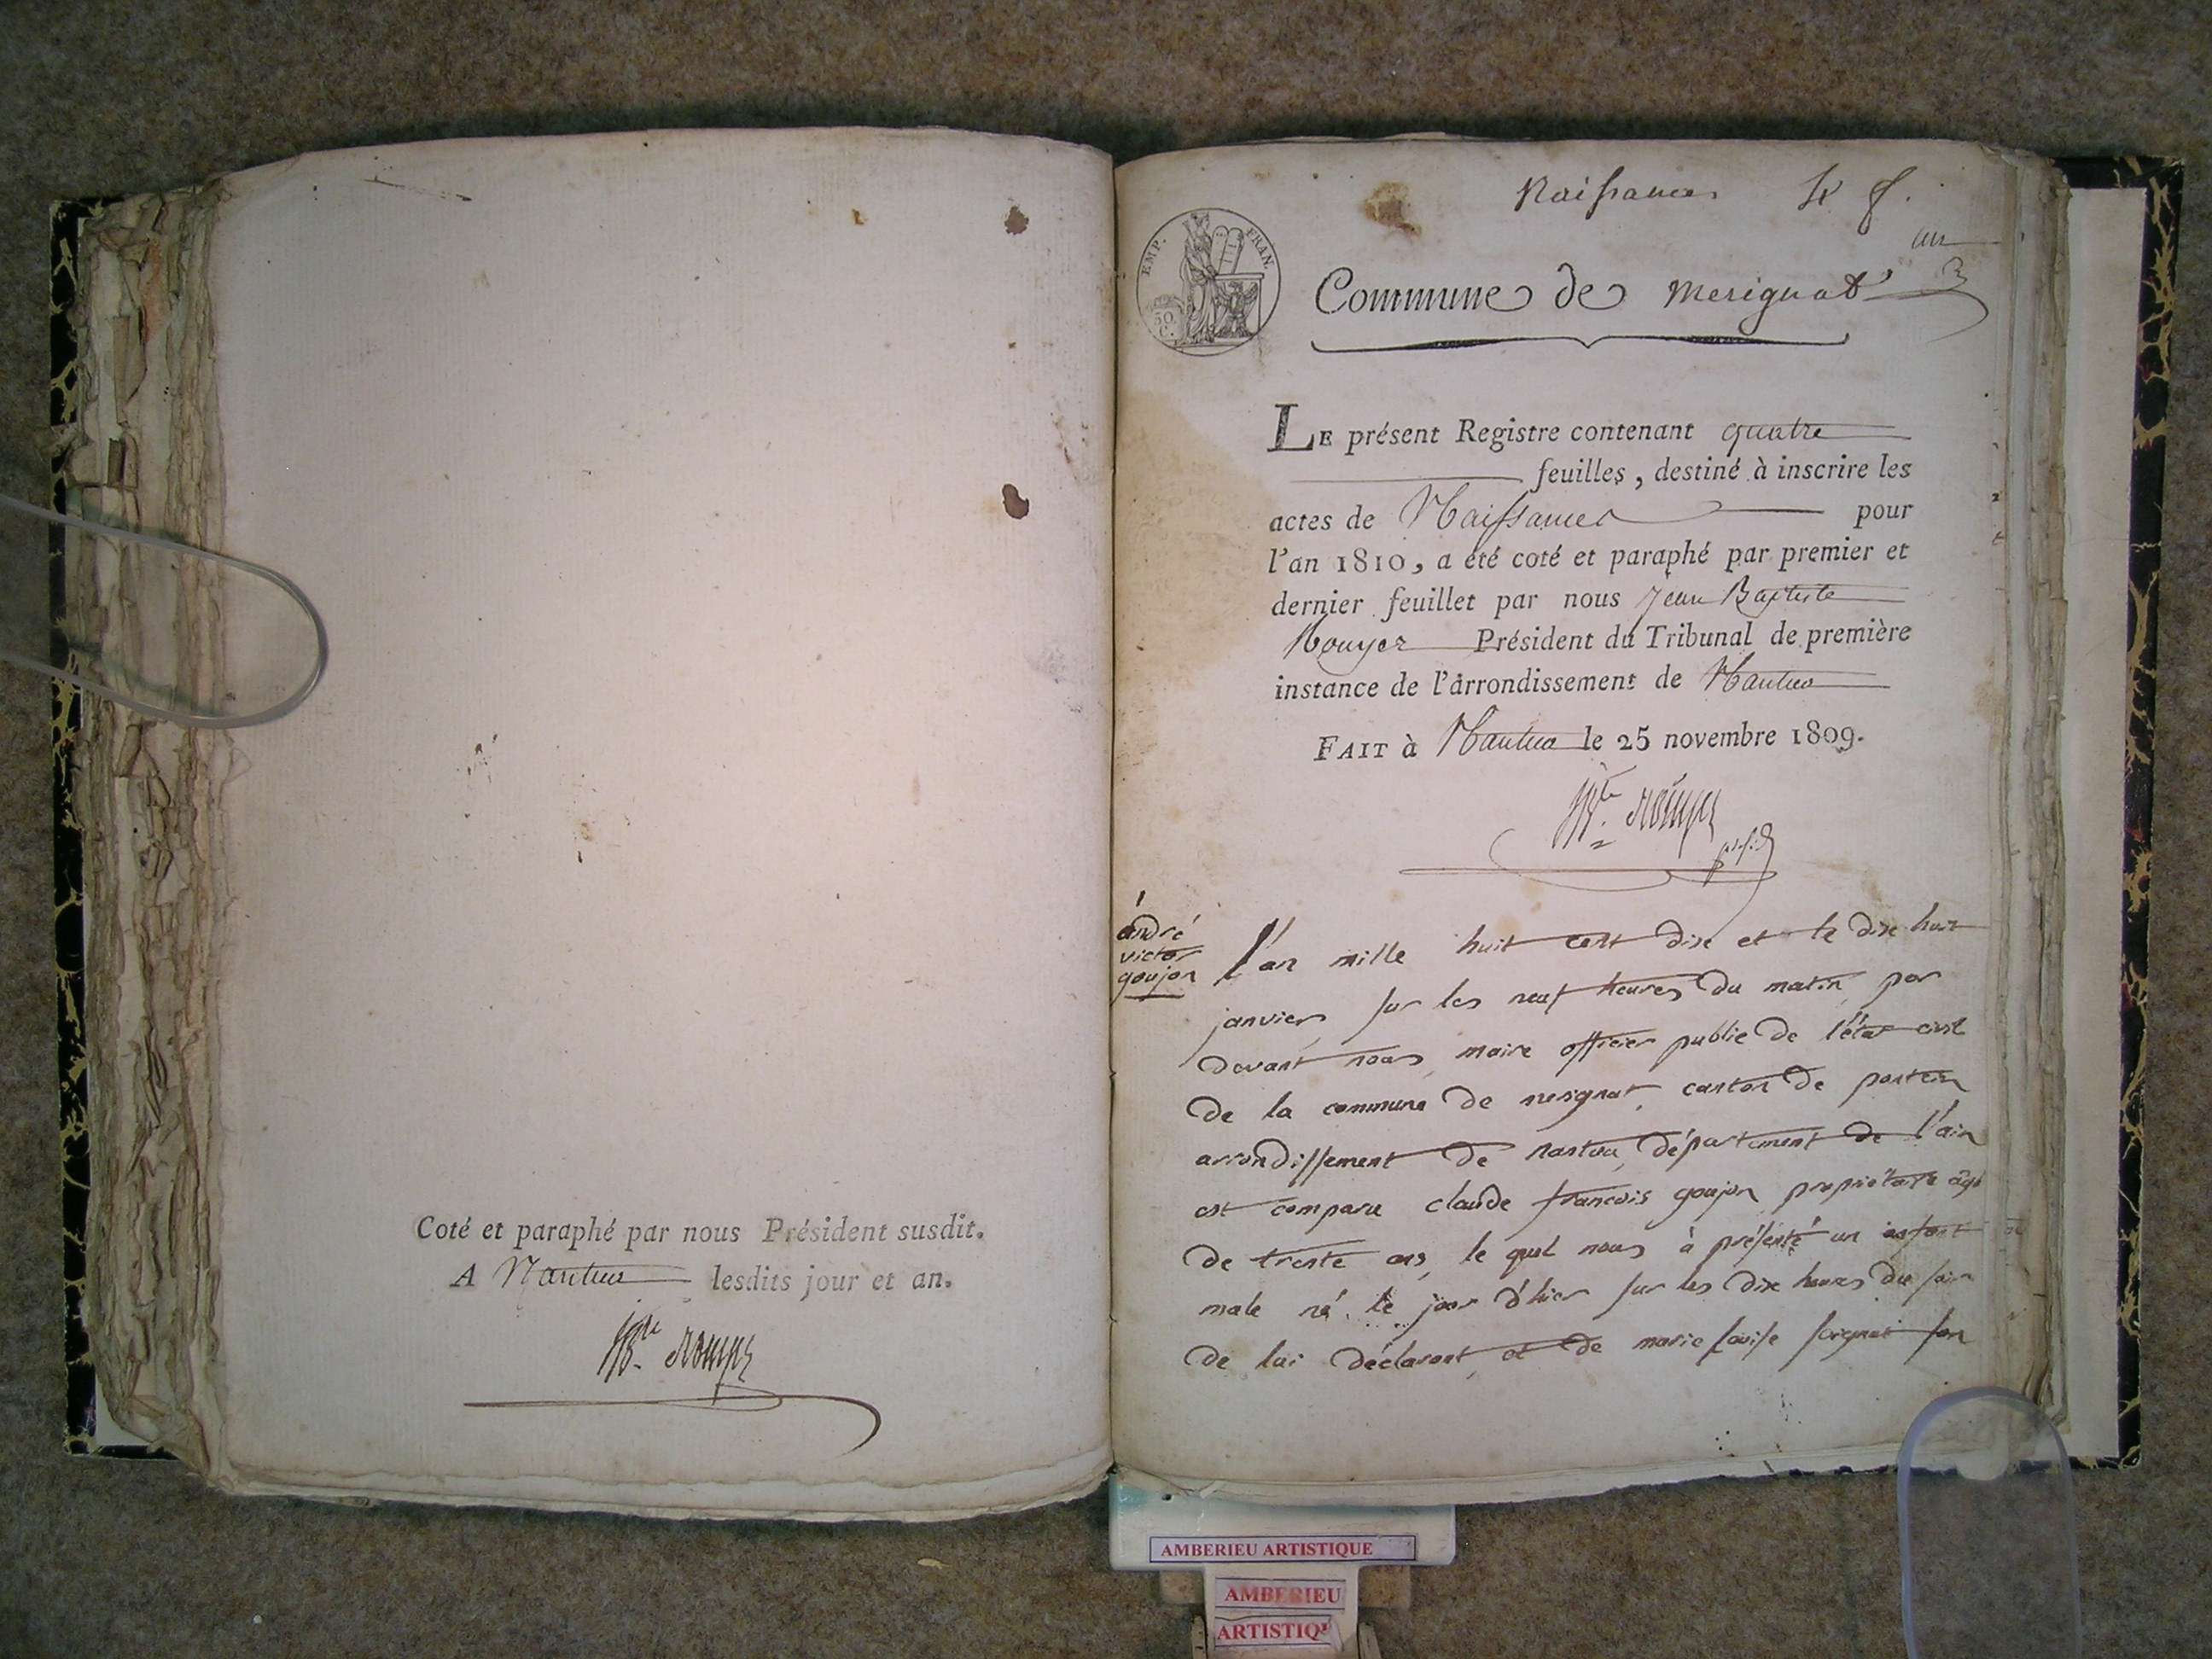 Coté et paraphé par nous Président susdit.
A Nantua lesdits jour et an.
JB.te Rouyer
Naissances 4 f.
EMP. FRAN.
50 C.
un
Commune de merignat
LE présent Registre contenant quatre
feuilles, destiné à inscrire les
actes de Naissances pour
l'an 1810, a été coté et paraphé par premier et
dernier feuillet par nous Jean Baptiste
Rouyer Président du Tribunal de première
instance de l'arrondissement de Nantua
FAIT à Nantua le 25 novembre 1809.
JB.te Rouyer
andré
victor
goujon
l'an mille huit cent dix et le dix huit
janvier sur les neuf heures du matin, par
devant nous, maire officier public de l'état civil
de la commune de merignat, canton de poncin
arrondissement de nantua, département de l'ain
est comparu claude francois goujon propriétaire âgé
de trente ans, le quel nous à présenté un enfant
male né le jour d'hier sur les dix heures du soir
de lui déclarant, et de marie louise soignat son
AMBERIEU ARTISTIQUE
AMBERIEU
ARTISTIQU